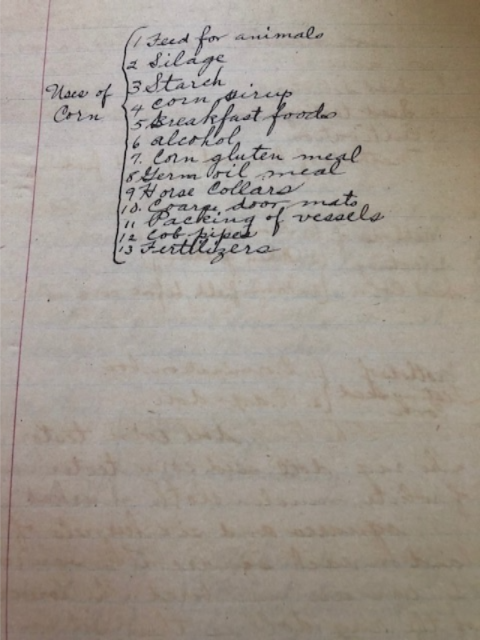 Uses of
Corn
1 Feed for animals
2 Silage
3 Starch
4 Corn sirup
5 Breakfast foods
6 alcohol
7. Corn gluten meal
8 Germ oil meal
9 Horse Collars
10. Coarse door mats
11 Packing of vessels
12 Cob pipes
13 Fertilizers